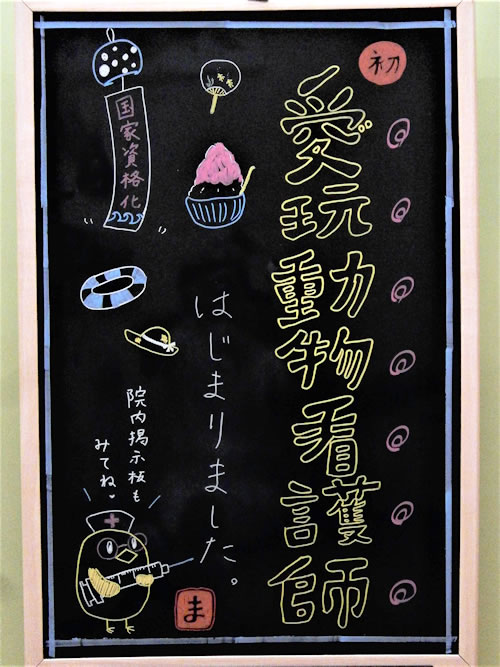 初
愛玩動物看護師
はじまりました。
国家資格化
院内掲示板も
みてね
ま